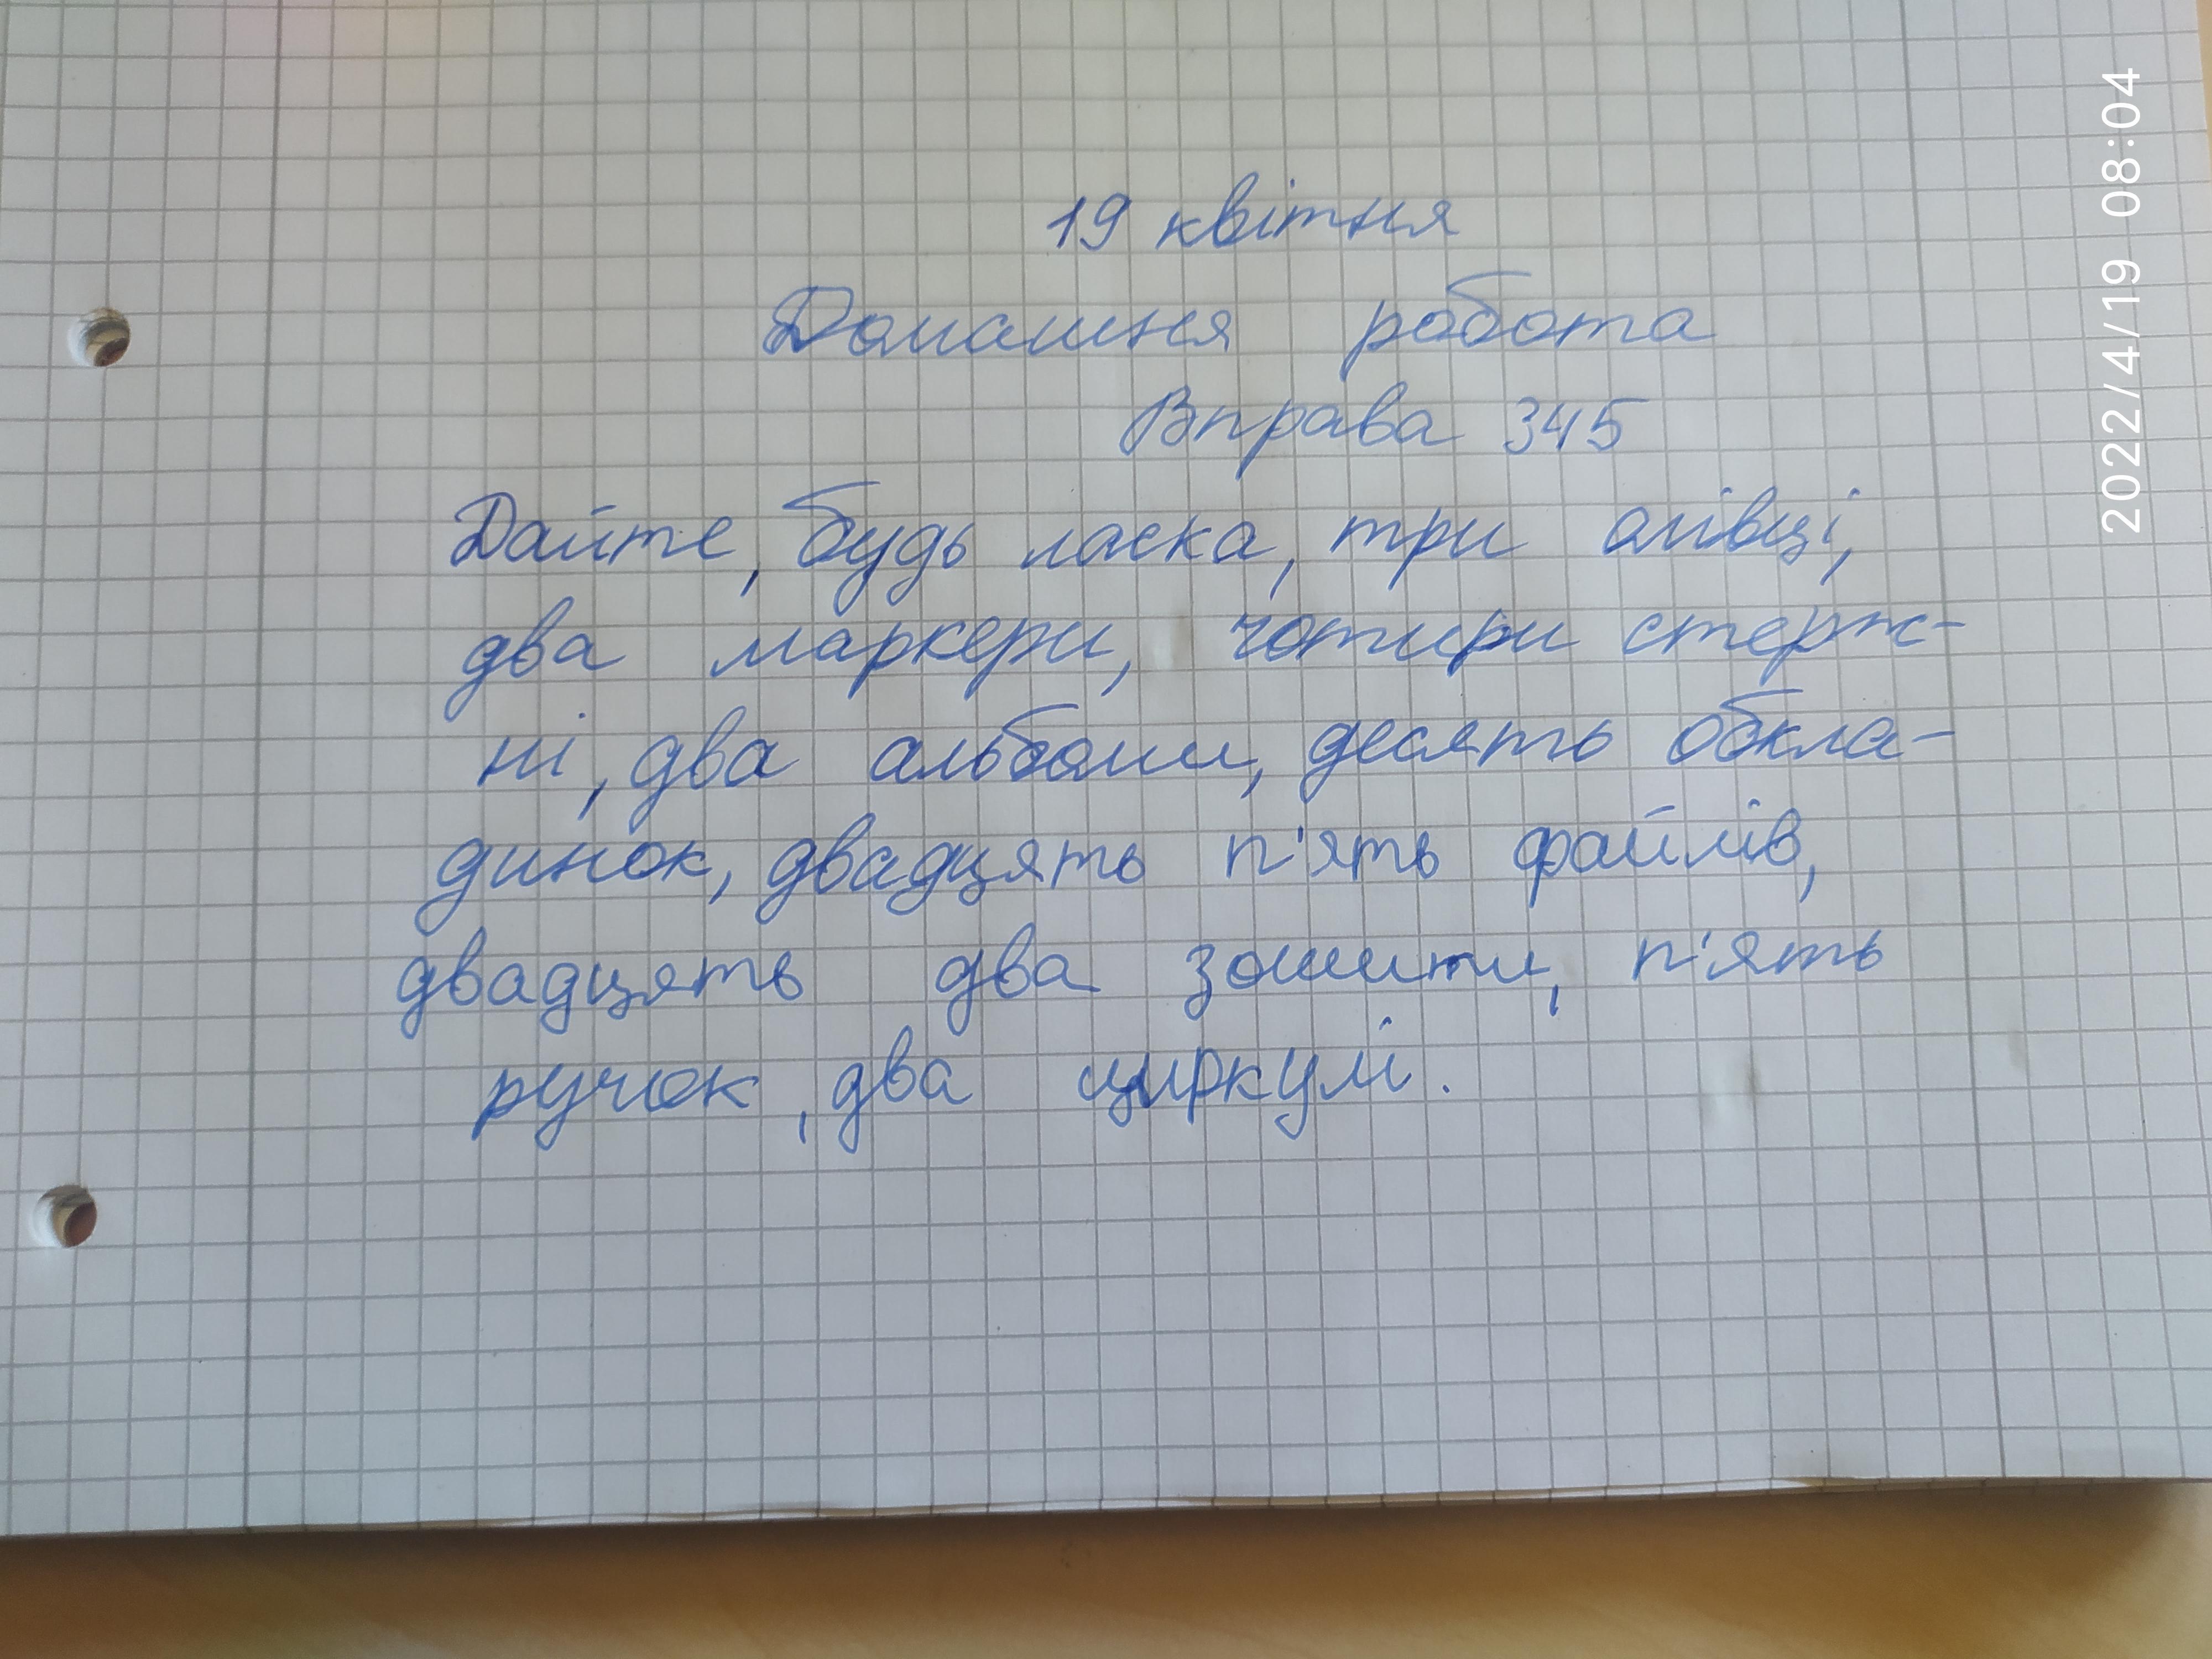 19 квітня
Домашня робота
Вправа 345
Дайте, будь ласка, три олівці,
два маркери, чотири стерж-
ні, два альбоми, десять обкла-
динок, двадцять п'ять файлів,
двадцять два зошити, п'ять
ручок, два циркулі.
2022/4/19 08:04